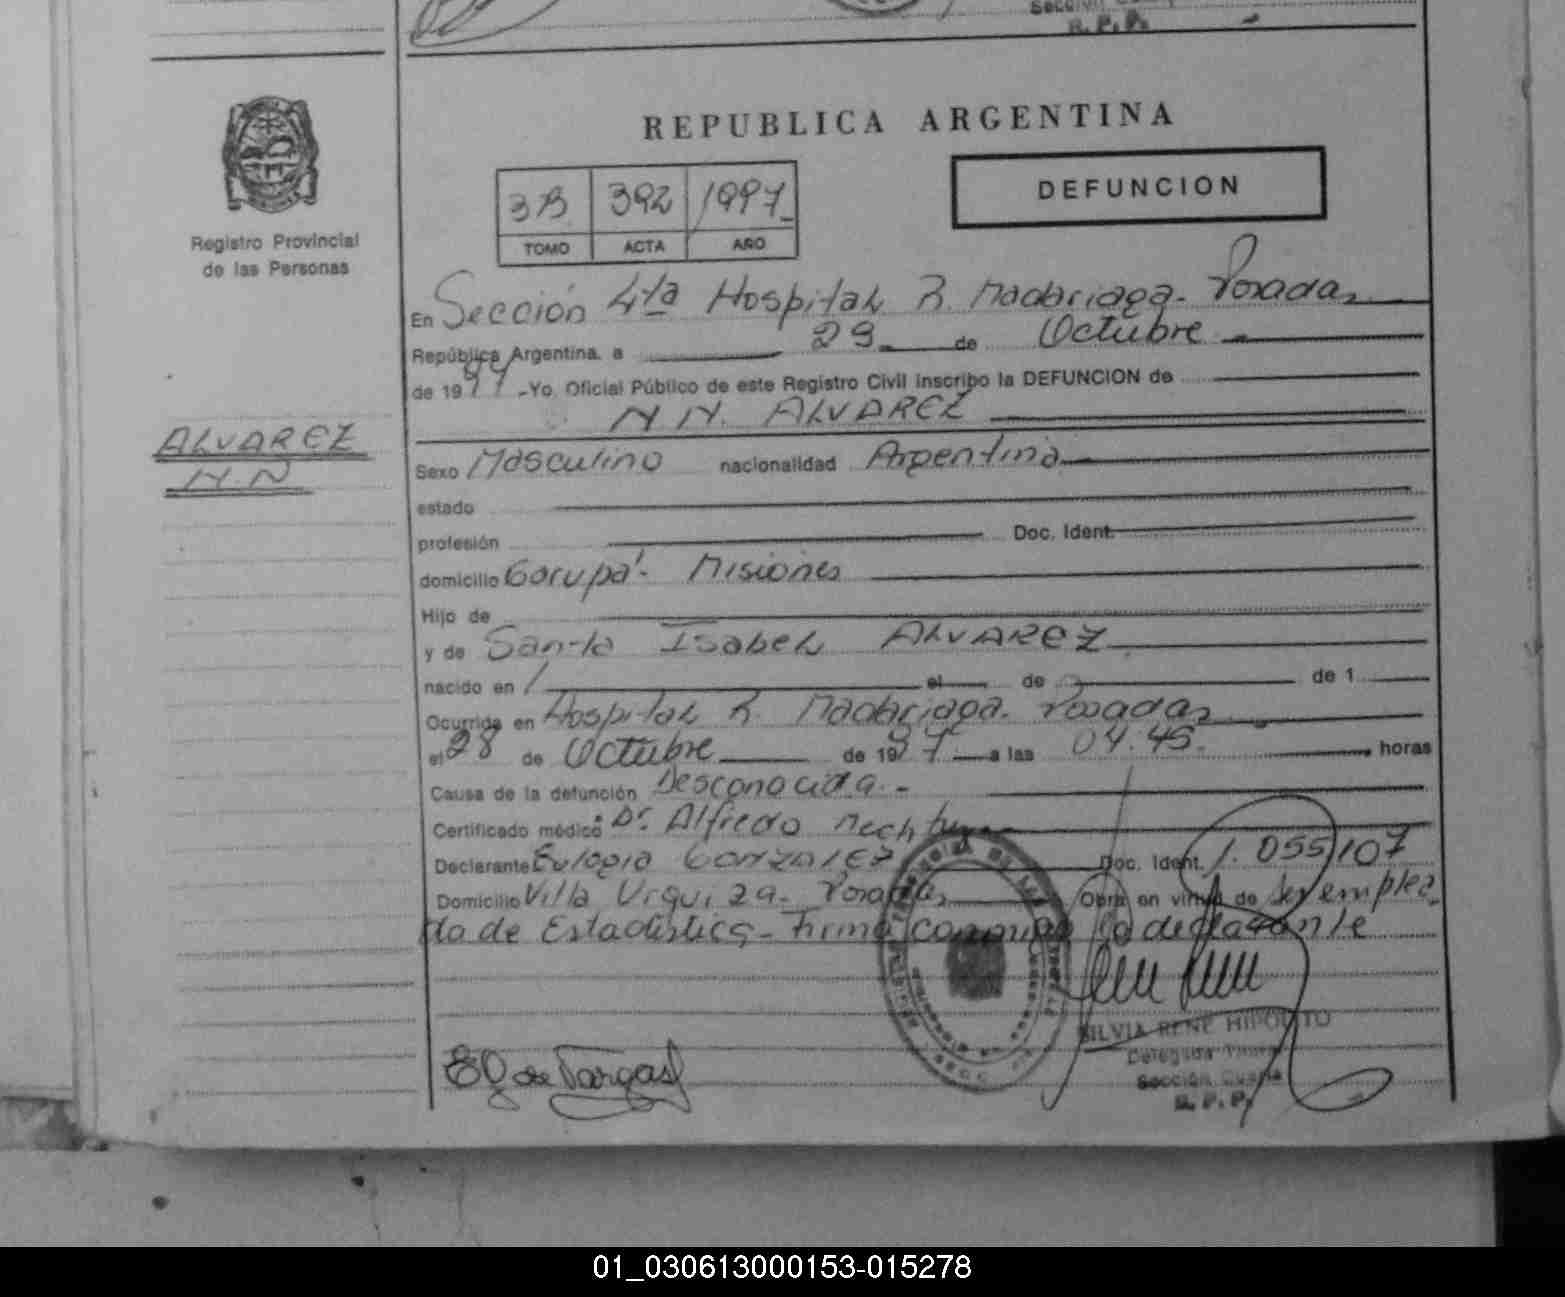 Sección
R. P. P.
Registro Provincial
de las Personas
REPUBLICA ARGENTINA
3B 392 1997
TOMO ACTA AÑO
DEFUNCION
En Sección 4ta Hospital R. Madariaga - Posadas
República Argentina, a 29 de Octubre
de 1997 - Yo, Oficial Público de este Registro Civil inscribo la DEFUNCION de
N.N. ALVAREZ
ALVAREZ
N.N
Sexo Masculino nacionalidad Argentina
estado
profesión Doc. Ident.
domicilio Garupá - Misiones
Hijo de
y de Santa Isabel ALVAREZ
nacido en / el de de 1
Ocurrida en Hospital R. Madariaga - Posadas
el 28 de Octubre de 1997 a las 04.45 horas
Causa de la defunción Desconocida.-
Certificado médico Dr. Alfredo
Declarante Eulogia Gonzalez Doc. Ident. 1.055107
Domicilio Villa Urquiza - Posadas Obra en virtud de ser emplea
da de Estadística - Firma la declarante
SILVIA RENE HIPOLITO
Delegada Titular
Sección Cuarta
R. P. P.
EG de Vargas
01_030613000153-015278